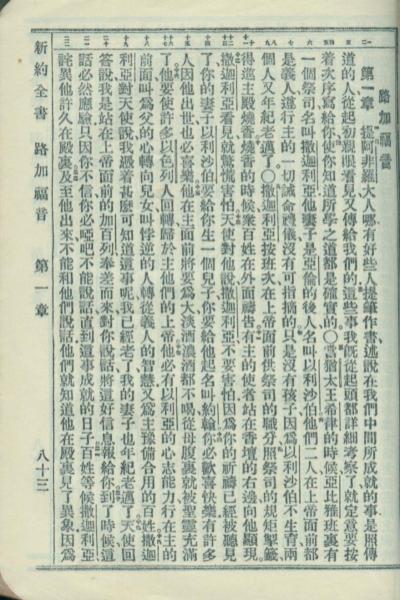 路加福音
第一章 提阿非羅大人哪有好些人提筆作書述說在我們中間所成就的事是照傳
道的人從起初親眼看見又傳給我們的這些事我旣從起頭都詳細考察了就定意要按
着次序寫給你使你知道所學之道都是確實的〇當猶太王希律的時候亞比雅班裏有
一個祭司名叫撒迦利亞他妻子是亞倫的後人名叫以利沙伯他們二人在上帝面前都
是義人遵行主的一切誡命禮儀沒有可指摘的只是沒有孩子因爲以利沙伯不生育兩
個人又年紀老邁了〇撒迦利亞按班次在上帝面前供祭司的職分照祭司的規矩掣籤
得進主殿燒香燒香的時候衆百姓在外面禱告有主的使者站在香壇的右邊向他顯現
撒迦利亞看見就驚慌害怕天使對他說撒迦利亞不要害怕因爲你的祈禱已經被聽見
了你的妻子以利沙伯要給你生一個兒子你要給他起名叫約翰你必歡喜快樂有許多
人因他出世也必喜樂他在主面前將要爲大淡酒濃酒都不喝從母腹裏就被聖靈充滿
了他要使許多以色列人回轉歸於主他們的上帝他必有以利亞的心志能力行在主的
前面叫爲父的心轉向兒女叫悖逆的人轉從義人的智慧又爲主豫備合用的百姓撒迦
利亞對天使說我憑着甚麼可知道這事呢我已經老了我的妻子也年紀老邁了天使回
答說我是站在上帝面前的加百列奉差而來對你說話將這好信息報給你到了時候這
話必然應驗只因你不信你必啞吧不能說話直到這事成就的日子百姓等候撒迦利亞
詫異他許久在殿裏及至他出來不能和他們說話他們就知道他在殿裏見了異象因爲
新約全書 路加福音 第一章 八十三